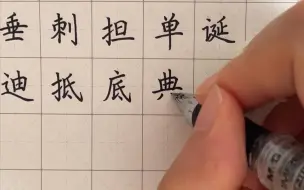 垂刺担单诞
迪抵底典
M&G